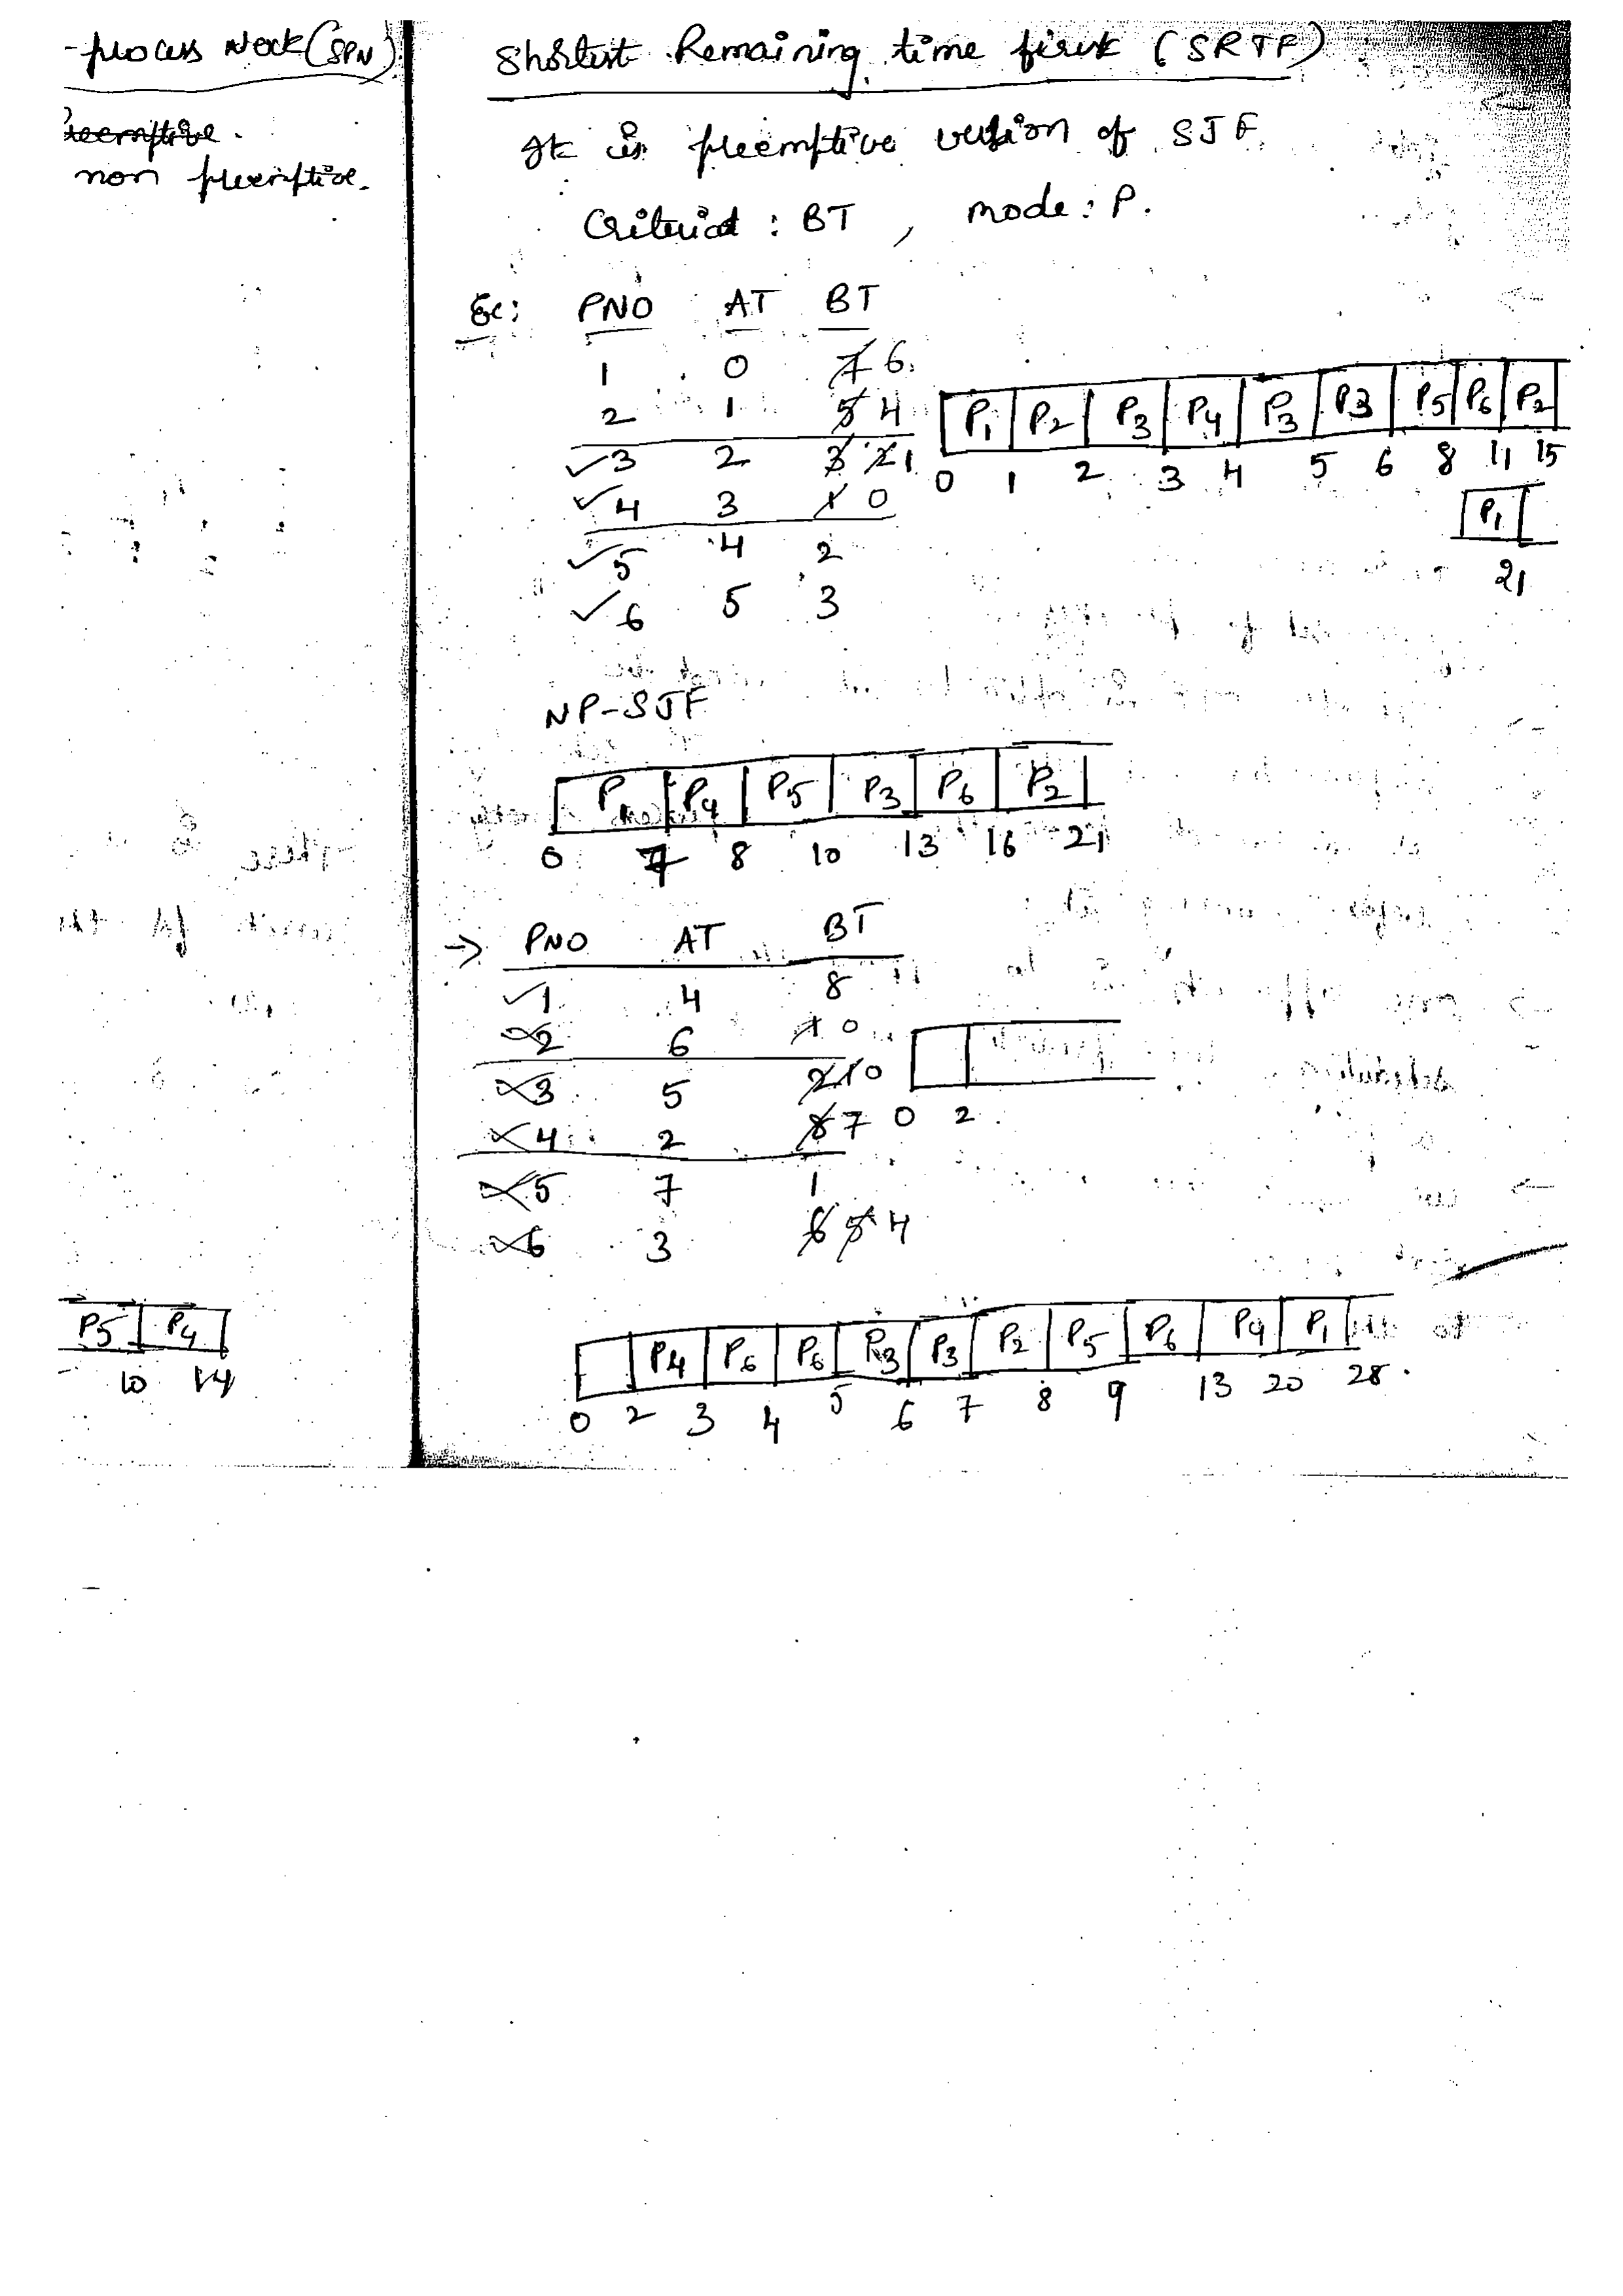 -process Next (SPN)
Preemptive.
non preemptive.
P5 P4
10 14
Shortest Remaining time first (SRTF)
It is preemptive version of SJF
Criteria : BT , mode : P.
Ex: PNO AT BT
1 0 7 6
2 1 5 4
✓3 2 3 2 1
✓4 3 1 0
✓5 4 2
✓6 5 3
P1 P2 P3 P4 P3 P3 P5 P6 P2
0 1 2 3 4 5 6 8 11 15
P1
21
NP-SJF
P1 P4 P5 P3 P6 P2
0 7 8 10 13 16 21
→ PNO AT BT
✓1 4 8
2 6 1 0
3 5 2 1 0
4 2 8 7
5 7 1
6 3 6 5 4
0 2
P4 P6 P6 P3 P3 P2 P5 P6 P4 P1
0 2 3 4 5 6 7 8 9 13 20 28.